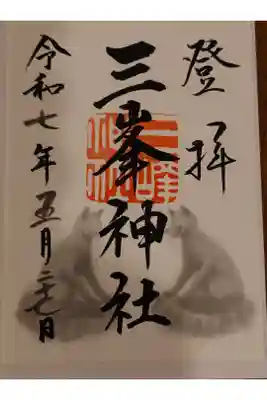 登拝
三峯神社
令和七年五月二十七日